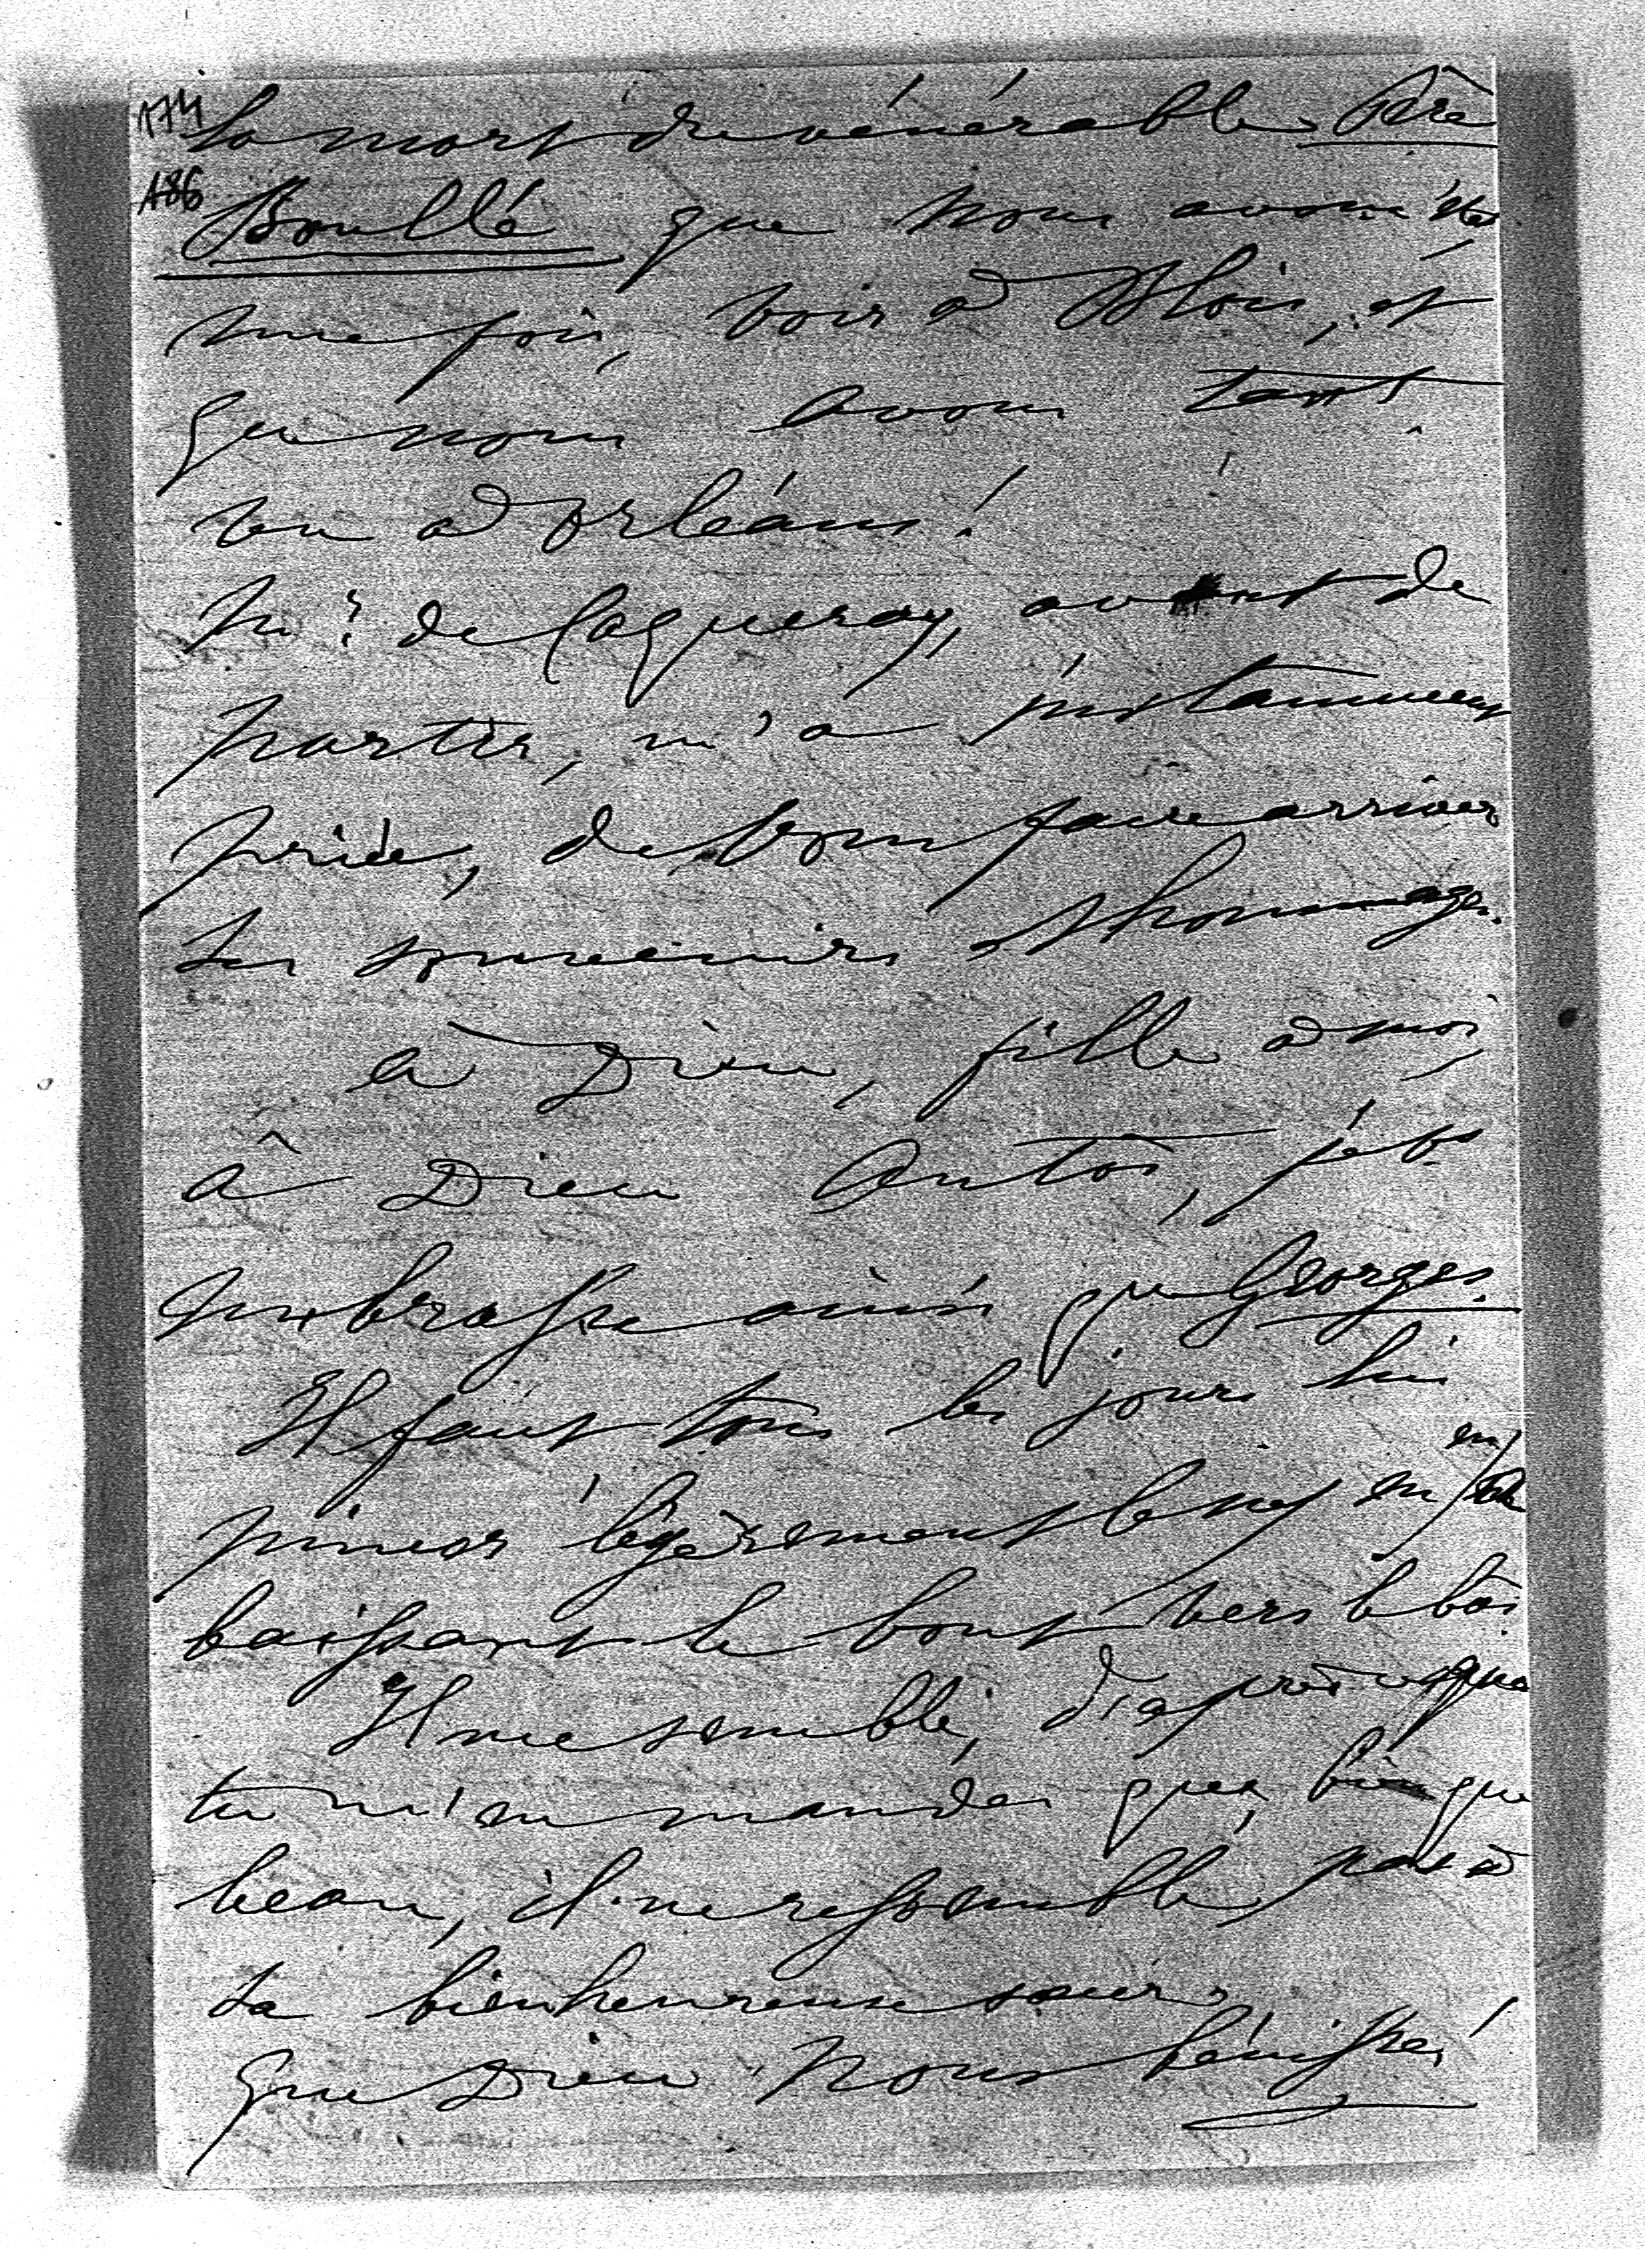 174
la mort du vénérable Père
186
Boullé que nous avons été
une fois, voir à Blois, et
que nous avons tant
vu à Orléans !
Mr de Caqueray, avant de
partir, m'a instamment
priée, de vous faire arriver
ses souvenirs et hommages.
à Dieu, fille à moi,
à Dieu Anton, je t'
embrasse ainsi que Georges.
Il faut tous les jours lui
pincer légèrement le nez en en
baissant le bout vers le bas.
Il me semble, d'après ce que
tu m'en mandes que, bien que
beau, il ne ressemble pas à
sa bienheureuse sœur.
Que Dieu nous bénisse !